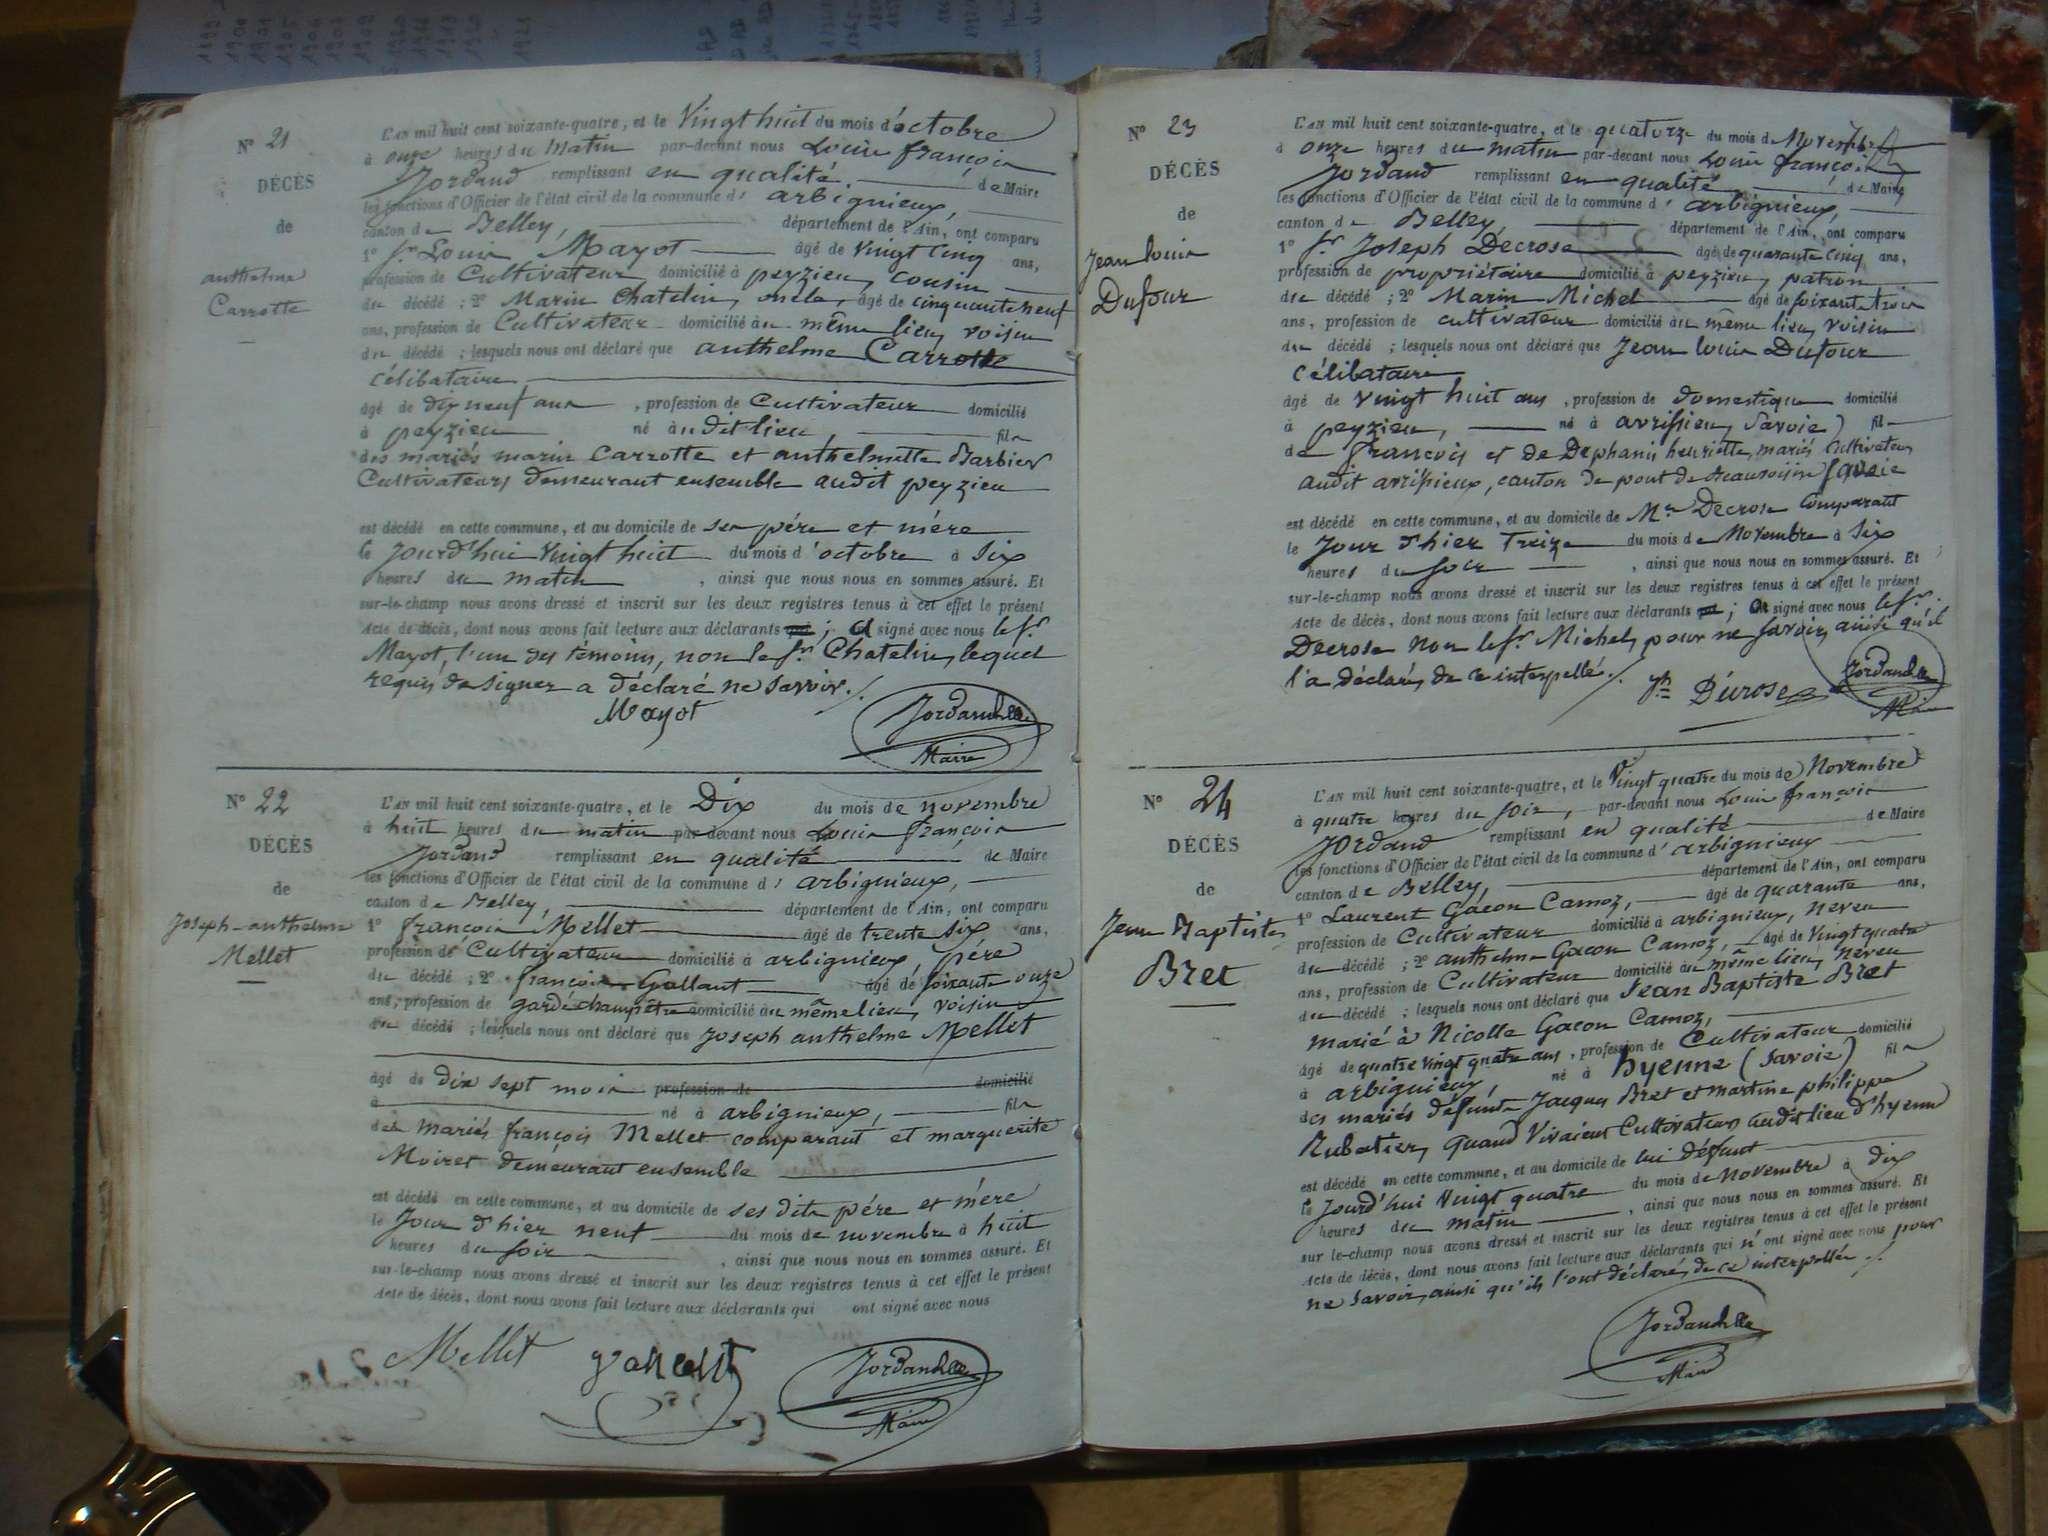 N° 21
DÉCÈS
de
anthelme
Carrotte
L'AN mil huit cent soixante-quatre, et le Vingt huit du mois d'octobre
à onze heures du matin par-devant nous Louis françois
Jordand remplissant en qualité de Maire
les fonctions d'Officier de l'état civil de la commune d' arbignieux,
canton de Belley, département de l'Ain, ont comparu
1° Sr Louis Mayot âgé de vingt cinq ans,
profession de Cultivateur domicilié à peyzieu, cousin
du décédé ; 2° Marin Chatelin, oncle, âgé de cinquante neuf
ans, profession de Cultivateur domicilié au même lieu, voisin
du décédé ; lesquels nous ont déclaré que anthelme Carrotte
célibataire
âgé de dix neuf ans , profession de Cultivateur domicilié
à peyzieu né audit lieu, fils
des mariés marin Carrotte et anthelmette Barbier
Cultivateurs demeurant ensemble audit peyzieu
est décédé en cette commune, et au domicile de ses père et mère
le Jourd'hui vingt huit du mois d'octobre à six
heures du matin , ainsi que nous nous en sommes assuré. Et
sur-le-champ nous avons dressé et inscrit sur les deux registres tenus à cet effet le présent
Acte de décès, dont nous avons fait lecture aux déclarants qui ; a signé avec nous le Sr
Mayot, l'un des témoins, non le Sr Chatelin, lequel
requis de signer a déclaré ne savoir./.
Mayot
Jordand
Maire
N° 22
DÉCÈS
de
Joseph-anthelme
Mellet
L'AN mil huit cent soixante-quatre, et le Dix du mois de novembre
à huit heures du matin par-devant nous Louis François
Jordand remplissant en qualité de Maire
les fonctions d'Officier de l'état civil de la commune d' arbignieux,
canton de Belley, département de l'Ain, ont comparu
1° françois Mellet âgé de trente six ans,
profession de Cultivateur domicilié à arbignieux, père
du décédé ; 2° françois Gallant âgé de soixante onze
ans, profession de garde champêtre domicilié au même lieu, voisin
du décédé ; lesquels nous ont déclaré que Joseph anthelme Mellet
âgé de dix sept mois profession de domicilié
à né à arbignieux, fils
des mariés françois Mellet comparant et marguerite
Moiret demeurant ensemble
est décédé en cette commune, et au domicile de ses dits père et mère
le Jour d'hier neuf du mois de novembre à huit
heures du soir , ainsi que nous nous en sommes assuré. Et
sur-le-champ nous avons dressé et inscrit sur les deux registres tenus à cet effet le présent
Acte de décès, dont nous avons fait lecture aux déclarants qui ont signé avec nous
Mellet
Jordand
Maire
N° 23
DÉCÈS
de
Jean louis
Dufour
L'AN mil huit cent soixante-quatre, et le quatorze du mois de Novembre
à onze heures du matin par-devant nous Louis françois
Jordand remplissant en qualité de Maire
les fonctions d'Officier de l'état civil de la commune d' arbignieux,
canton de Belley, département de l'Ain, ont comparu
1° Sr Joseph Decrose âgé de quarante cinq ans,
profession de propriétaire domicilié à peyzieu, patron
du décédé ; 2° Marin Michel âgé de soixante trois
ans, profession de cultivateur domicilié au même lieu, voisin
du décédé ; lesquels nous ont déclaré que Jean louis Dufour
célibataire
âgé de vingt huit ans , profession de domestique domicilié
à peyzieu, né à avrissieu, Savoie) fils
de François et de Dephanis henriette, mariés Cultivateurs
audit avrissieux, canton de pont de beauvoisin Savoie
est décédé en cette commune, et au domicile de Mr Decrose Comparant
le Jour d'hier Treize du mois de Novembre à Six
heures du soir , ainsi que nous nous en sommes assuré. Et
sur-le-champ nous avons dressé et inscrit sur les deux registres tenus à cet effet le présent
Acte de décès, dont nous avons fait lecture aux déclarants qui ; a signé avec nous le Sr.
Decrose non le Sr. Michel, pour ne savoir, ainsi qu'il
l'a déclaré, de ce interpellé./.
Jh Décrose
Jordand
Maire
N° 24
DÉCÈS
de
Jean Baptiste
Bret
L'AN mil huit cent soixante-quatre, et le Vingt quatre du mois de Novembre
à quatre heures du soir, par-devant nous Louis françois
Jordand remplissant en qualité de Maire
les fonctions d'Officier de l'état civil de la commune d' arbignieux
canton de Belley, département de l'Ain, ont comparu
1° Laurent Gacon Camoz, âgé de quarante ans,
profession de Cultivateur domicilié à arbignieux, neveu
du décédé ; 2° anthelme Gacon Camoz, âgé de Vingt quatre
ans, profession de Cultivateur domicilié au même lieu, neveu
du décédé ; lesquels nous ont déclaré que Jean Baptiste Bret
marié à Nicolle Gacon Camoz,
âgé de quatre vingt quatre ans , profession de Cultivateur domicilié
à arbignieux, né à hyenne (Savoie) fils
des mariés défunts Jacques Bret et martine philippe
Rubatier, quand Vivaient Cultivateurs audit lieu d'hyenne
est décédé en cette commune, et au domicile de lui défunt
le Jourd'hui Vingt quatre du mois de Novembre à dix
heures du matin , ainsi que nous nous en sommes assuré. Et
sur le-champ nous avons dressé et inscrit sur les deux registres tenus à cet effet le présent
Acte de décès, dont nous avons fait lecture aux déclarants qui n'ont signé avec nous pour
ne Savoir, ainsi qu'ils l'ont déclaré, de ce interpellés./.
Jordand
Maire